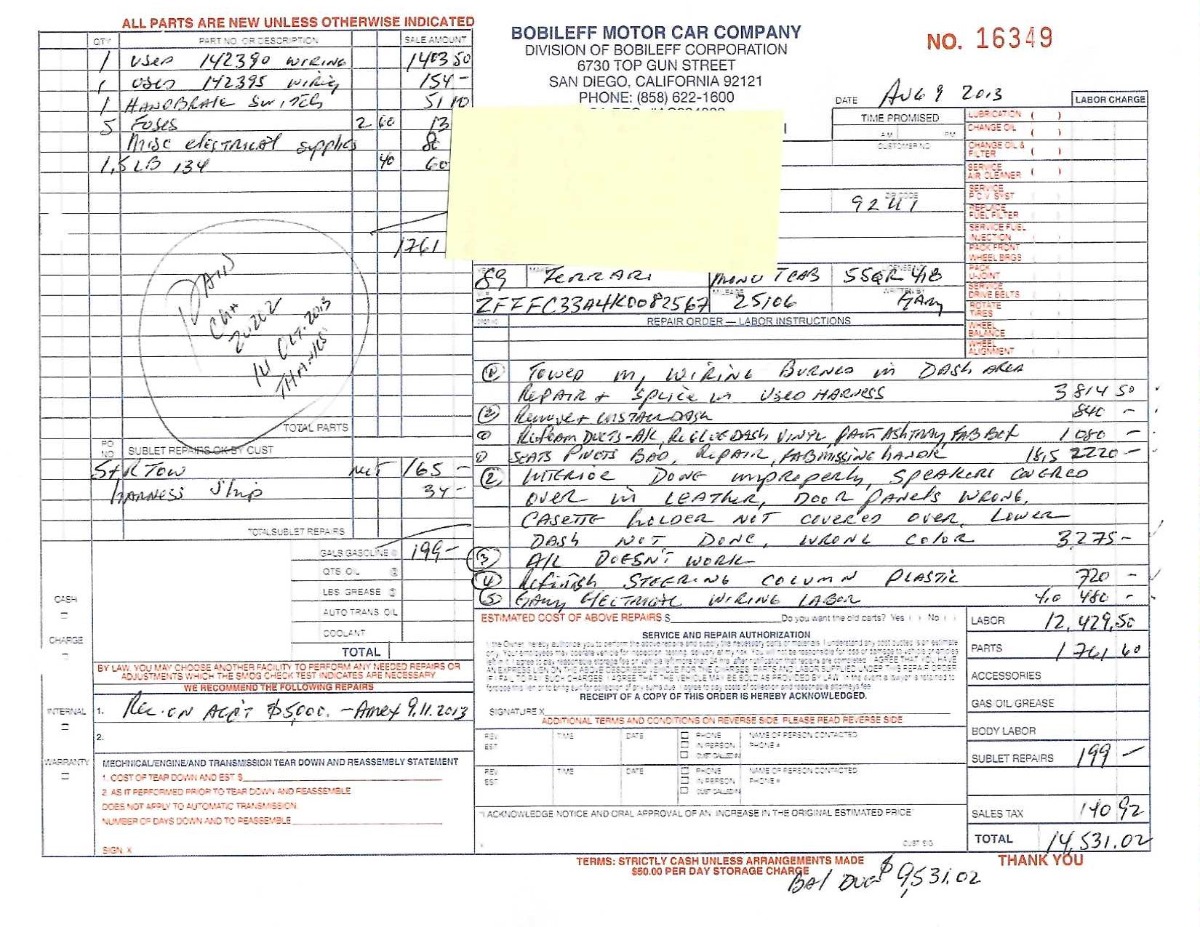 ALL PARTS ARE NEW UNLESS OTHERWISE INDICATED
QTY PART NO. OR DESCRIPTION SALE AMOUNT
1 USED 142390 WIRING 1403 50
1 USED 142395 WIRING 154 -
1 HANDBRAKE SWITCH 51 10
5 FUSES 2 60 13
MISC ELECTRICAL SUPPLIES 80
1,5 LB 134 40 60
1761
PAID
CK#
20202
14 OCT. 2013
THANKS
TOTAL PARTS
PO NO SUBLET REPAIRS OK BY CUST
S+R TOW NET 165 -
HARNESS SHIP 34 -
TOTAL SUBLET REPAIRS
199 -
GALS GASOLINE @
QTS OIL @
LBS GREASE @
AUTO TRANS OIL
COOLANT
TOTAL
CASH
CHARGE
INTERNAL
WARRANTY
BY LAW, YOU MAY CHOOSE ANOTHER FACILITY TO PERFORM ANY NEEDED REPAIRS OR
ADJUSTMENTS WHICH THE SMOG CHECK TEST INDICATES ARE NECESSARY
WE RECOMMEND THE FOLLOWING REPAIRS
1. REC. ON ACC'T $5,000. - AMEX 9.11.2013
2.
MECHNICAL/ENGINE/AND TRANSMISSION TEAR DOWN AND REASSEMBLY STATEMENT
1. COST OF TEAR DOWN AND EST $
2. AS IT PERFORMED PRIOR TO TEAR DOWN AND REASSEMBLE
DOES NOT APPLY TO AUTOMATIC TRANSMISSION
NUMBER OF DAYS DOWN AND TO REASSEMBLE
SIGN. X
BOBILEFF MOTOR CAR COMPANY
DIVISION OF BOBILEFF CORPORATION
6730 TOP GUN STREET
SAN DIEGO, CALIFORNIA 92121
PHONE: (858) 622-1600
NO. 16349
DATE AUG 9 2013
TIME PROMISED
AM PM
CUSTOMER NO
ZIP CODE
89 FERRARI MONDO T CAB 5SQR418
MILEAGE
WRITTEN BY
ZFFFC33A4K0082567 25106 GARY
REPAIR ORDER — LABOR INSTRUCTIONS
LABOR CHARGE
LUBRICATION ( )
CHANGE OIL ( )
CHANGE OIL & FILTER ( )
SERVICE AIR CLEANER ( )
SERVICE P.C.V. SYST
REPLACE FUEL FILTER
SERVICE FUEL INJECTION
PACK FRONT WHEEL BRGS
PACK U-JOINT
SERVICE DRIVE BELTS
ROTATE TIRES
WHEEL BALANCE
WHEEL ALIGNMENT
TOWED IN, WIRING BURNED IN DASH AREA
REPAIR + SPLICE IN USED HARNESS 3814 50
REMOVE + INSTALL DASH 840 -
REFOAM DUCTS-A/C, REGLUE DASH VINYL, PAINT ASHTRAY, FAB BOX 1080 -
SEATS PIVOTS BAD, REPAIR, FAB MISSING HANDR 1815 2220 -
2 INTERIOR DONE IMPROPERLY, SPEAKERS COVERED
OVER IN LEATHER, DOOR PANELS WRONG,
CASETTE HOLDER NOT COVERED OVER, LOWER
DASH NOT DONE, WRONG COLOR 3,275 -
3 A/C DOESN'T WORK
4 REFINISH STEERING COLUMN PLASTIC 720 -
5 GARY ELECTRICAL WIRING LABOR 4.0 480 -
ESTIMATED COST OF ABOVE REPAIRS $ Do you want the old parts? Yes ( ) No ( )
SERVICE AND REPAIR AUTHORIZATION
RECEIPT OF A COPY OF THIS ORDER IS HEREBY ACKNOWLEDGED.
SIGNATURE X
ADDITIONAL TERMS AND CONDITIONS ON REVERSE SIDE PLEASE READ REVERSE SIDE
REV. EST TIME DATE PHONE IN PERSON CUST CALLED IN NAME OF PERSON CONTACTED PHONE #
REV. EST TIME DATE PHONE IN PERSON CUST CALLED IN NAME OF PERSON CONTACTED PHONE #
I ACKNOWLEDGE NOTICE AND ORAL APPROVAL OF AN INCREASE IN THE ORIGINAL ESTIMATED PRICE
CUST SIG
LABOR 12,429,50
PARTS 1761 60
ACCESSORIES
GAS OIL GREASE
BODY LABOR
SUBLET REPAIRS 199 -
SALES TAX 140 92
TOTAL 14,531.02
TERMS: STRICTLY CASH UNLESS ARRANGEMENTS MADE
$50.00 PER DAY STORAGE CHARGE
THANK YOU
BAL DUE $9,531.02